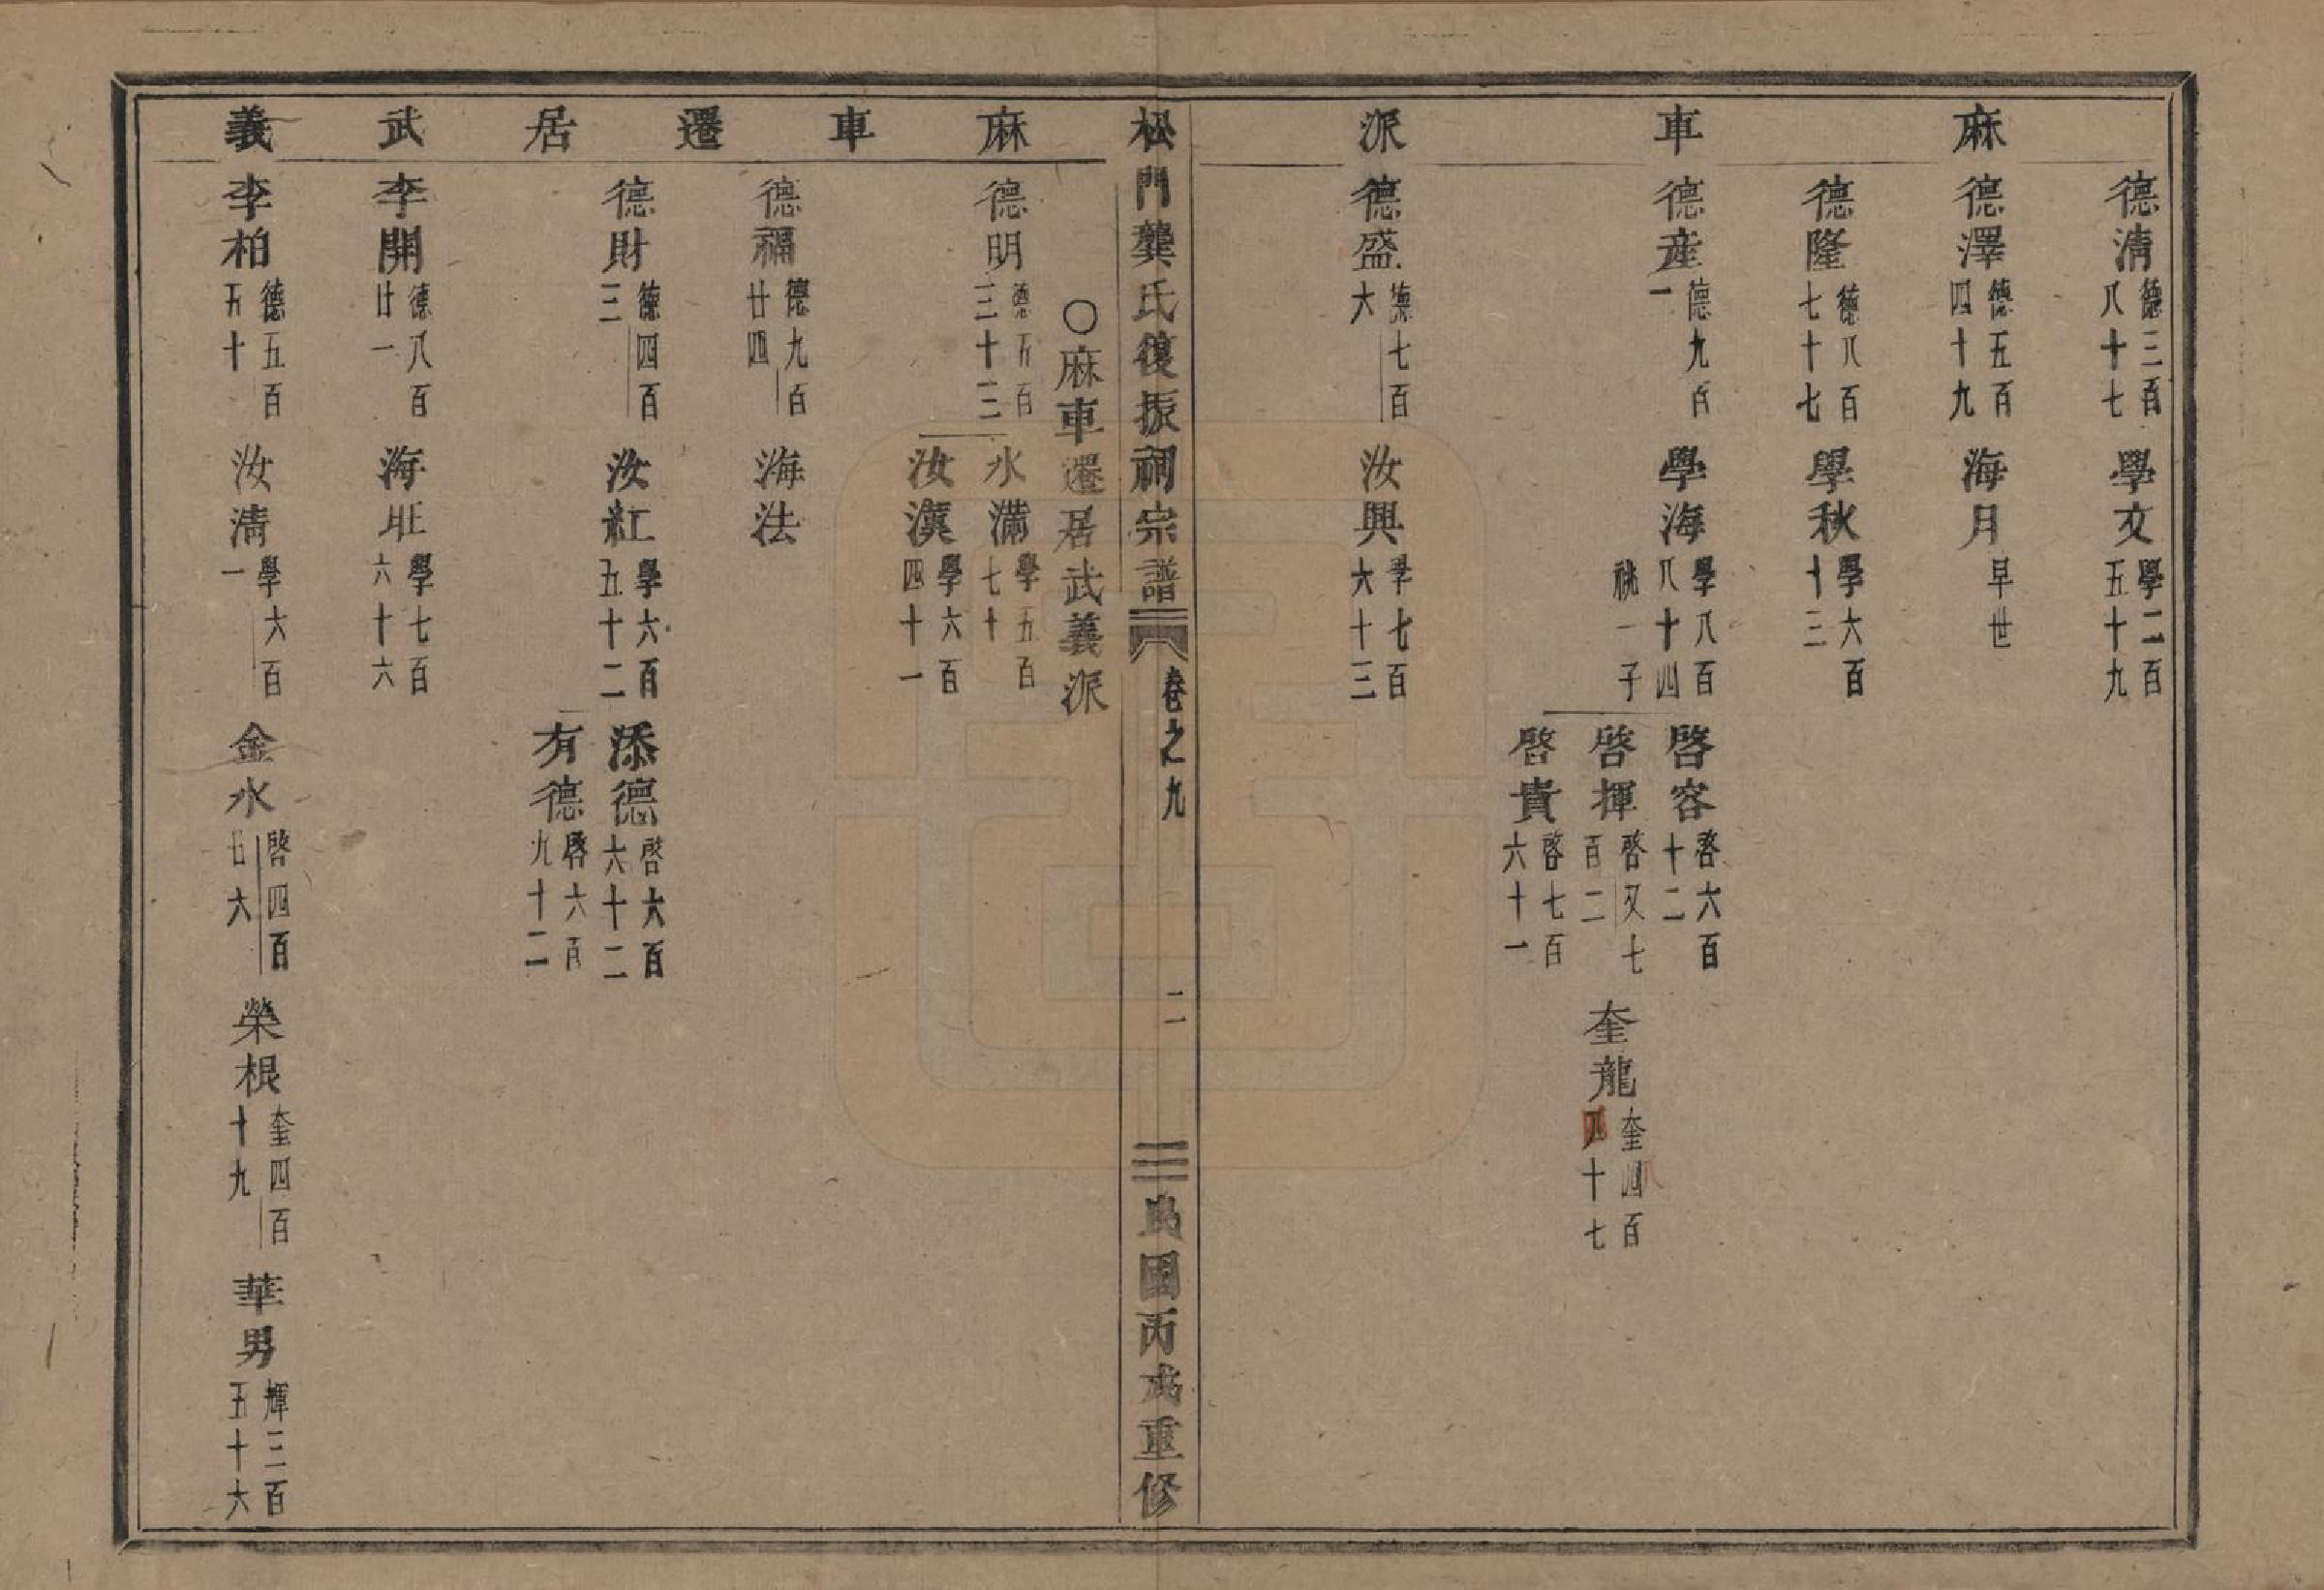 麻車派
德清 德三百八十七 學文 學二百五十九
德澤 德五百四十九 海月 早世
德隆 德八百七十七 學秋 學六百十三
德産 德九百一 學海 學八百八十四 祧一子 啓容 啓六百十二
啓揮 啓又七百二 奎龍 奎四百四十七
啓貴 啓七百六十一
德盛 德七百六 汝興 學七百六十三
松門龔氏復振祠宗譜 卷之九 二 民國丙戌重修
麻車遷居武義
○麻車遷居武義派
德明 德五百三十三 水滿 學五百七十
汝漢 學六百四十一
德福 德九百廿四 海法
德財 德四百三 汝紅 學六百五十二 添德 啓六百六十二
有德 啓六百九十二
李開 德八百廿一 海旺 學七百六十六
李柏 德五百五十 汝清 學六百一 金水 啓四百七六 榮根 奎四百十九 華男 輝三百五十六